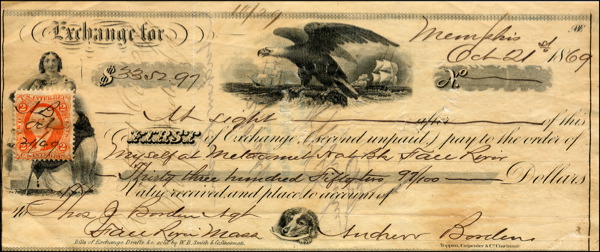 Exchange for Memphis
$3352.97 Oct 21st 1869
No
At sight after of this
FIRST of Exchange, (second unpaid) pay to the order of
Myself at Metacomet Bank Fall River
Thirty three hundred Fifty two 97/100 Dollars
Value received and place to account of
To Thos J Borden Agt
Fall River Mass Andrew Borden
Bills of Exchange Drafts &c. sold by W.B. Smith & Co. Cincinnati. Toppan, Carpenter & Co. Cincinnati